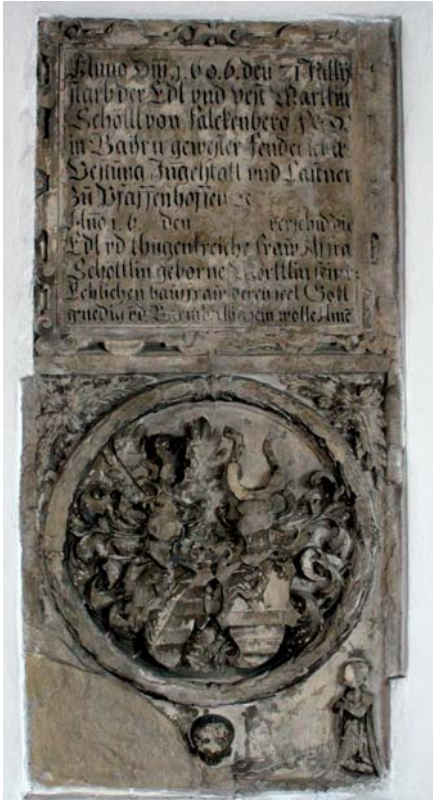 Anno Dm̄ 1.6.0.6. den 21 Jully
starb der Edl vnd vest Martin
Schöttl von Falckenberg
in Bayrn gewester Fenderich der
Vestung Ingelstatt vnd Castner
zu Pfaffenhoffen &c
Año 1.6 den verschid die
Edl vd thugentreiche fraw Affra
Schöttlin geborne
Eehlichen hausfraw deren seel Gott
gnedig vd Barmhertzig sein wolle Amē